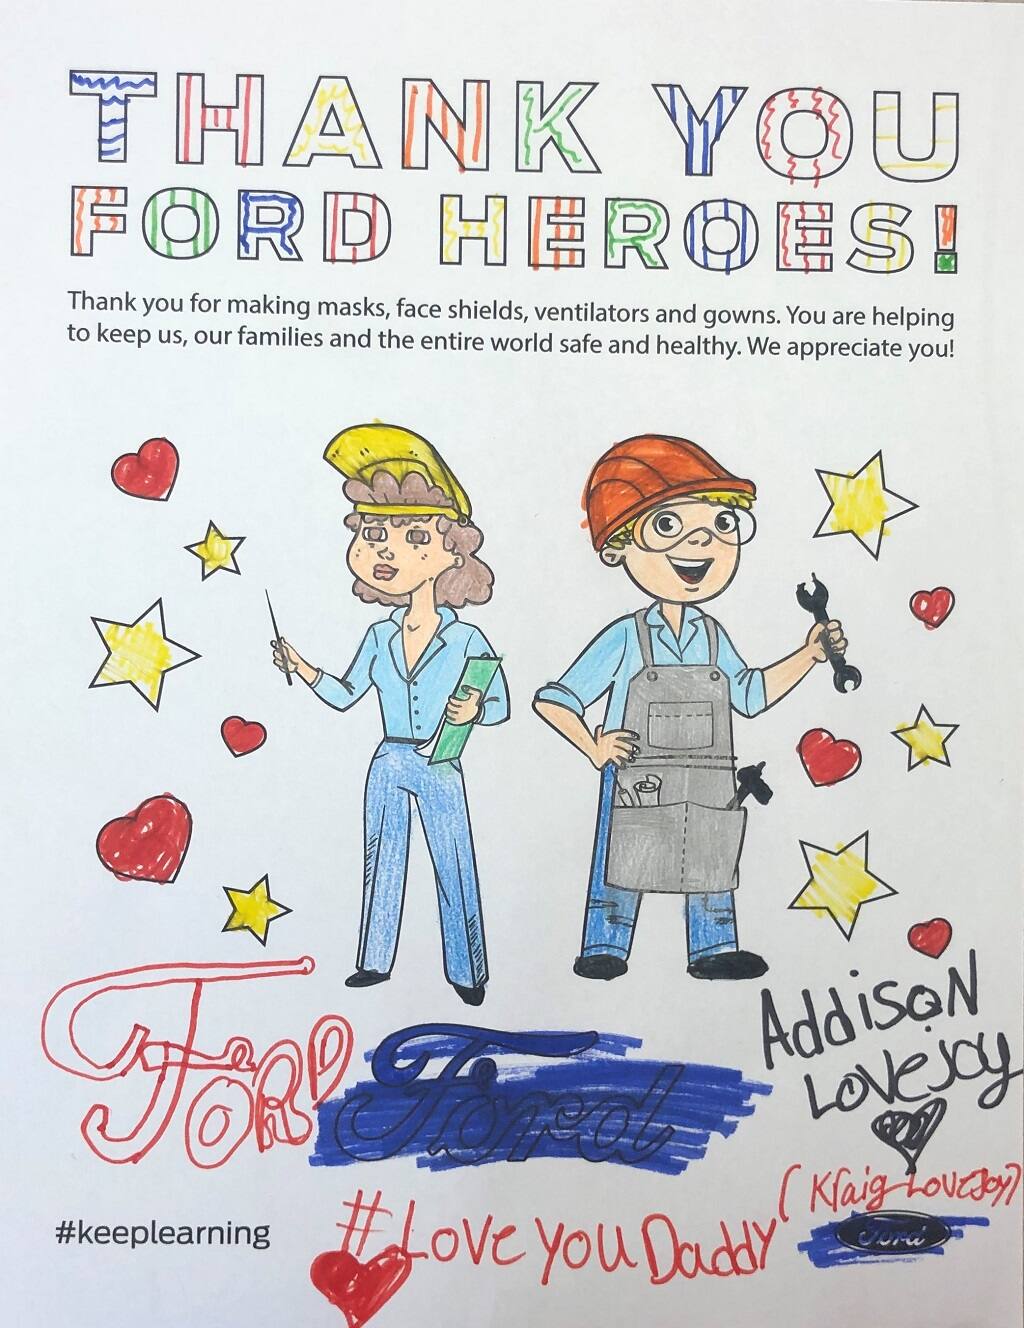 THANK YOU
FORD HEROES!
Thank you for making masks, face shields, ventilators and gowns. You are helping
to keep us, our families and the entire world safe and healthy. We appreciate you!
FORD Ford
Addison
Lovejoy
(Kraig Lovejoy)
#keeplearning
#Love you Daddy
Ford